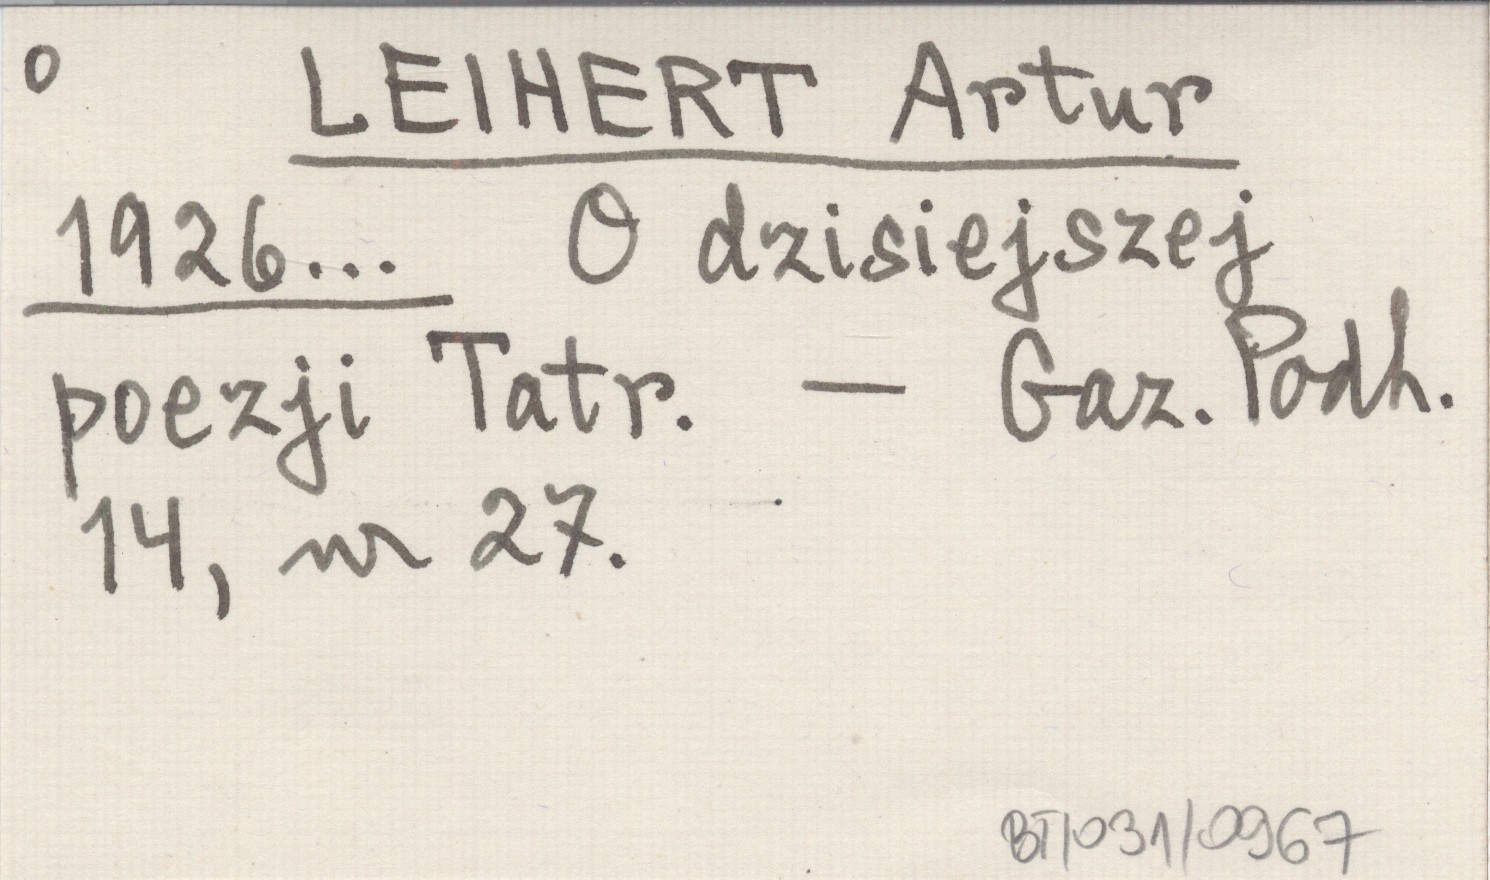 o LEIHERT Artur
1926... O dzisiejszej
poezji Tatr. — Gaz. Podh.
14, nr 27.
BT/031/0967